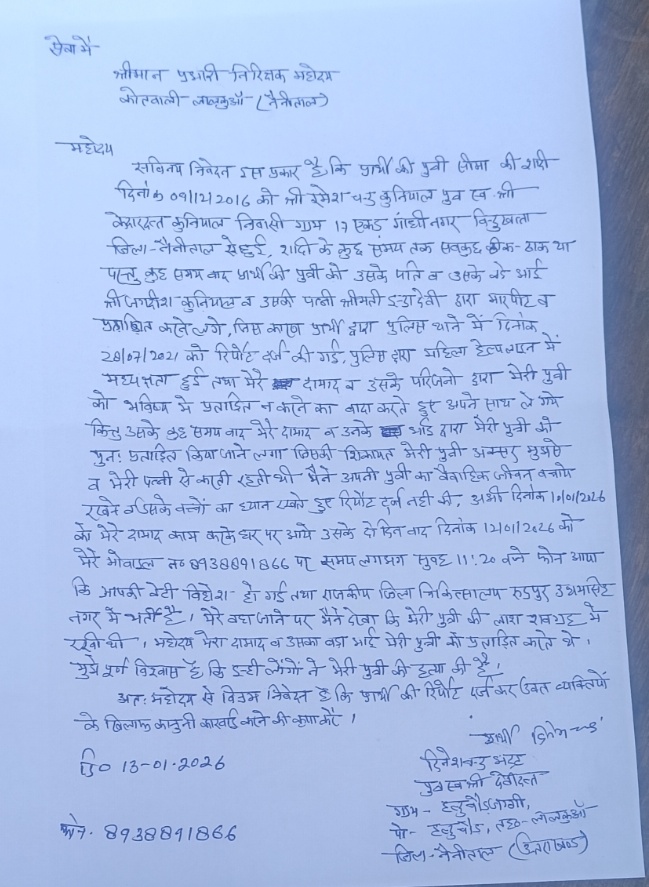 सेवा में
श्रीमान प्रभारी निरिक्षक महोदय
कोतवाली लालकुआँ (नैनीताल)
महोदय
सविनय निवेदन इस प्रकार है कि प्रार्थी की पुत्री सीमा की शादी
दिनांक 09/12/2016 को श्री रमेश चन्द्र कुनियाल पुत्र स्व. श्री
केदारदत्त कुनियाल निवासी ग्राम 17 एकड़ गांधी नगर बिन्दुखत्ता
जिला-नैनीताल से हुई, शादि के कुछ समय तक सबकुछ ठीक-ठाक था
परन्तु कुछ समय बाद प्रार्थी की पुत्री को उसके पति व उसके बड़े भाई
श्री जगदीश कुनियाल व उसकी पत्नी श्रीमती इन्द्रा देवी द्वारा मारपीट व
प्रताड़ित करने लगे, जिस कारण प्रार्थी द्वारा पुलिस थाने में दिनांक
20/07/2021 को रिपोर्ट दर्ज की गई, पुलिस द्वारा महिला हेल्पलाइन में
मध्यक्षता हुई तथा मेरे दामाद व उसके परिजनो द्वारा मेरी पुत्री
को भविष्य में प्रताड़ित न करने का वादा करते हुए अपने साथ ले गये
किन्तु उसके कुछ समय बाद मेरे दामाद व उनके भाई द्वारा मेरी पुत्री को
पुन: प्रताड़ित किया जाने लगा जिसकी शिकायत मेरी पुत्री अक्सर मुझसे
व मेरी पत्नी से करती रहती थी मैंने अपनी पुत्री का वैवाहिक जीवन बचाये
रखने व उसके बच्चों का ध्यान रखते हुए रिपोर्ट दर्ज नही की, अभी दिनांक 10/01/2026
को मेरे दामाद काम करके घर पर आये उसके दो दिन बाद दिनांक 12/01/2026 को
मेरे मोबाइल न० 8938891866 पर समय लगभग सुबह 11:20 बजे फोन आया
कि आपकी बेटी बिहोश हो गई तथा राजकीय जिला चिकित्सालय रुद्रपुर उधमसिंह
नगर में भर्ती है। मेरे वहा जाने पर मैंने देखा कि मेरी पुत्री की लाश शवगृह में
रखी थी। महोदय मेरा दामाद व उसका बड़ा भाई मेरी पुत्री को प्रताड़ित करते थे।
मुझे पूर्ण विश्वास है कि इन्ही लोगों ने मेरी पुत्री की हत्या की है।
अत: महोदय से विनम्र निवेदन है कि प्रार्थी की रिपोर्ट दर्ज कर उक्त व्यक्तियों
के खिलाफ कानुनी कारवाई करने की कृपा करें।
प्रार्थी
दि० 13-01-2026
दिनेशचन्द्र भट्ट
पुत्र स्व श्री देवीदत्त
ग्राम- हल्दुचौड़ जग्गी,
पो- हल्दुचौड़, तह०- लालकुआँ
जिला-नैनीताल (उत्तराखण्ड)
फोन. 8938891866